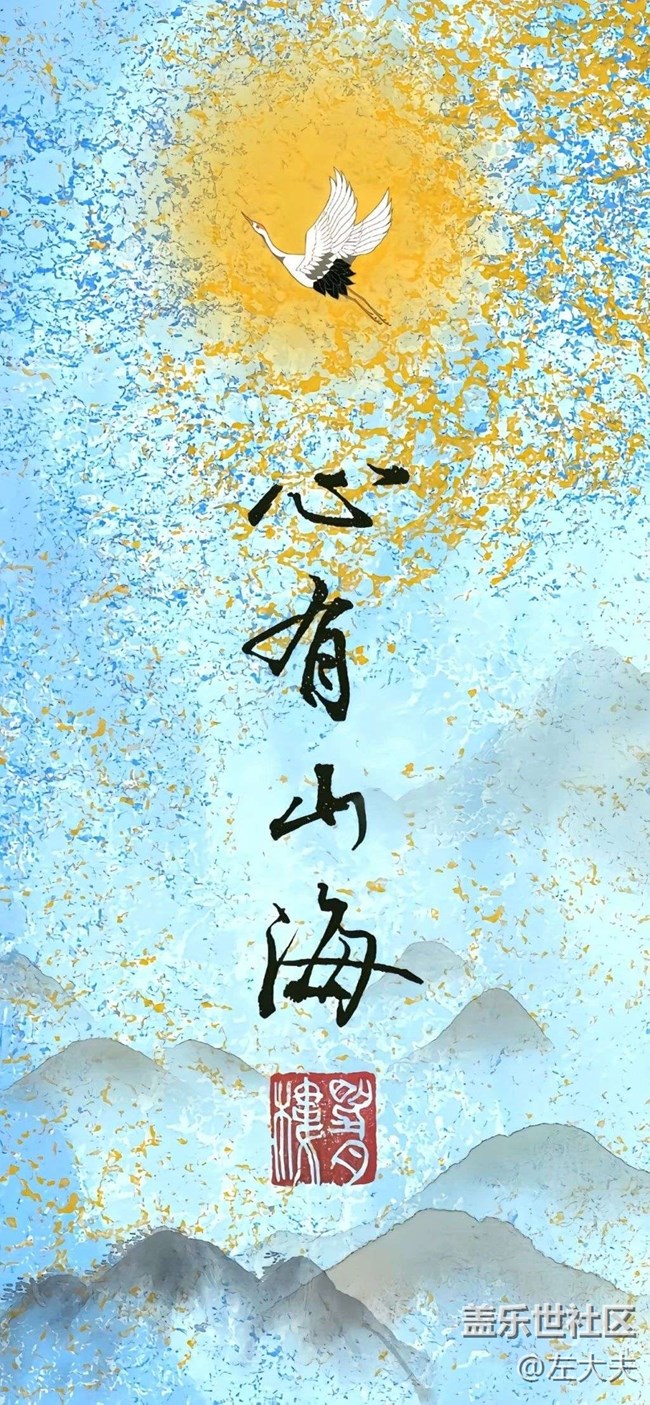 心有山海
盖乐世社区
@左大夫